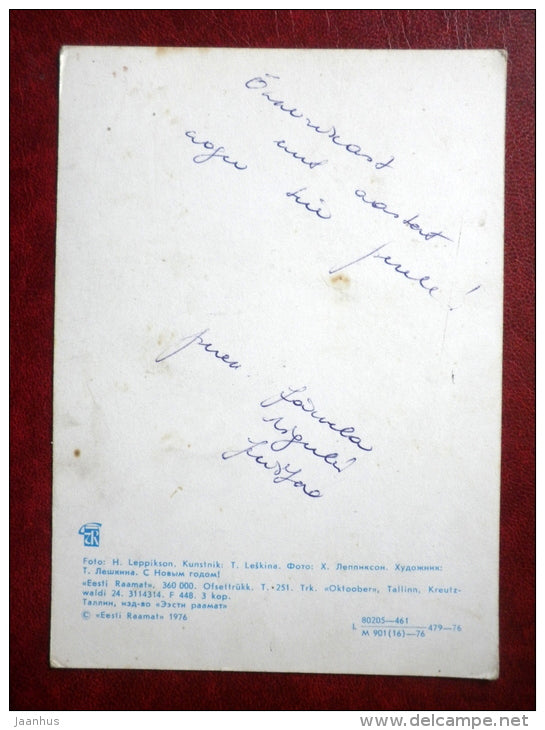 Õnnerikast
uut aastat
kogu teie perele!
Foto: H. Leppikson. Kunstnik: T. Leškina. Фото: Х. Леппиксон. Художник:
Т. Лешкина. С Новым годом!
«Eesti Raamat», 360 000. Ofsettrükk. T. 251. Trk. «Oktoober», Tallinn, Kreutz-
waldi 24. 3114314. F 448. 3 kop.
Таллин, изд-во «Ээсти раамат»
© «Eesti Raamat» 1976
80205—461
L 479—76
M 901(16)—76
jaanhann
www.delcampe.net